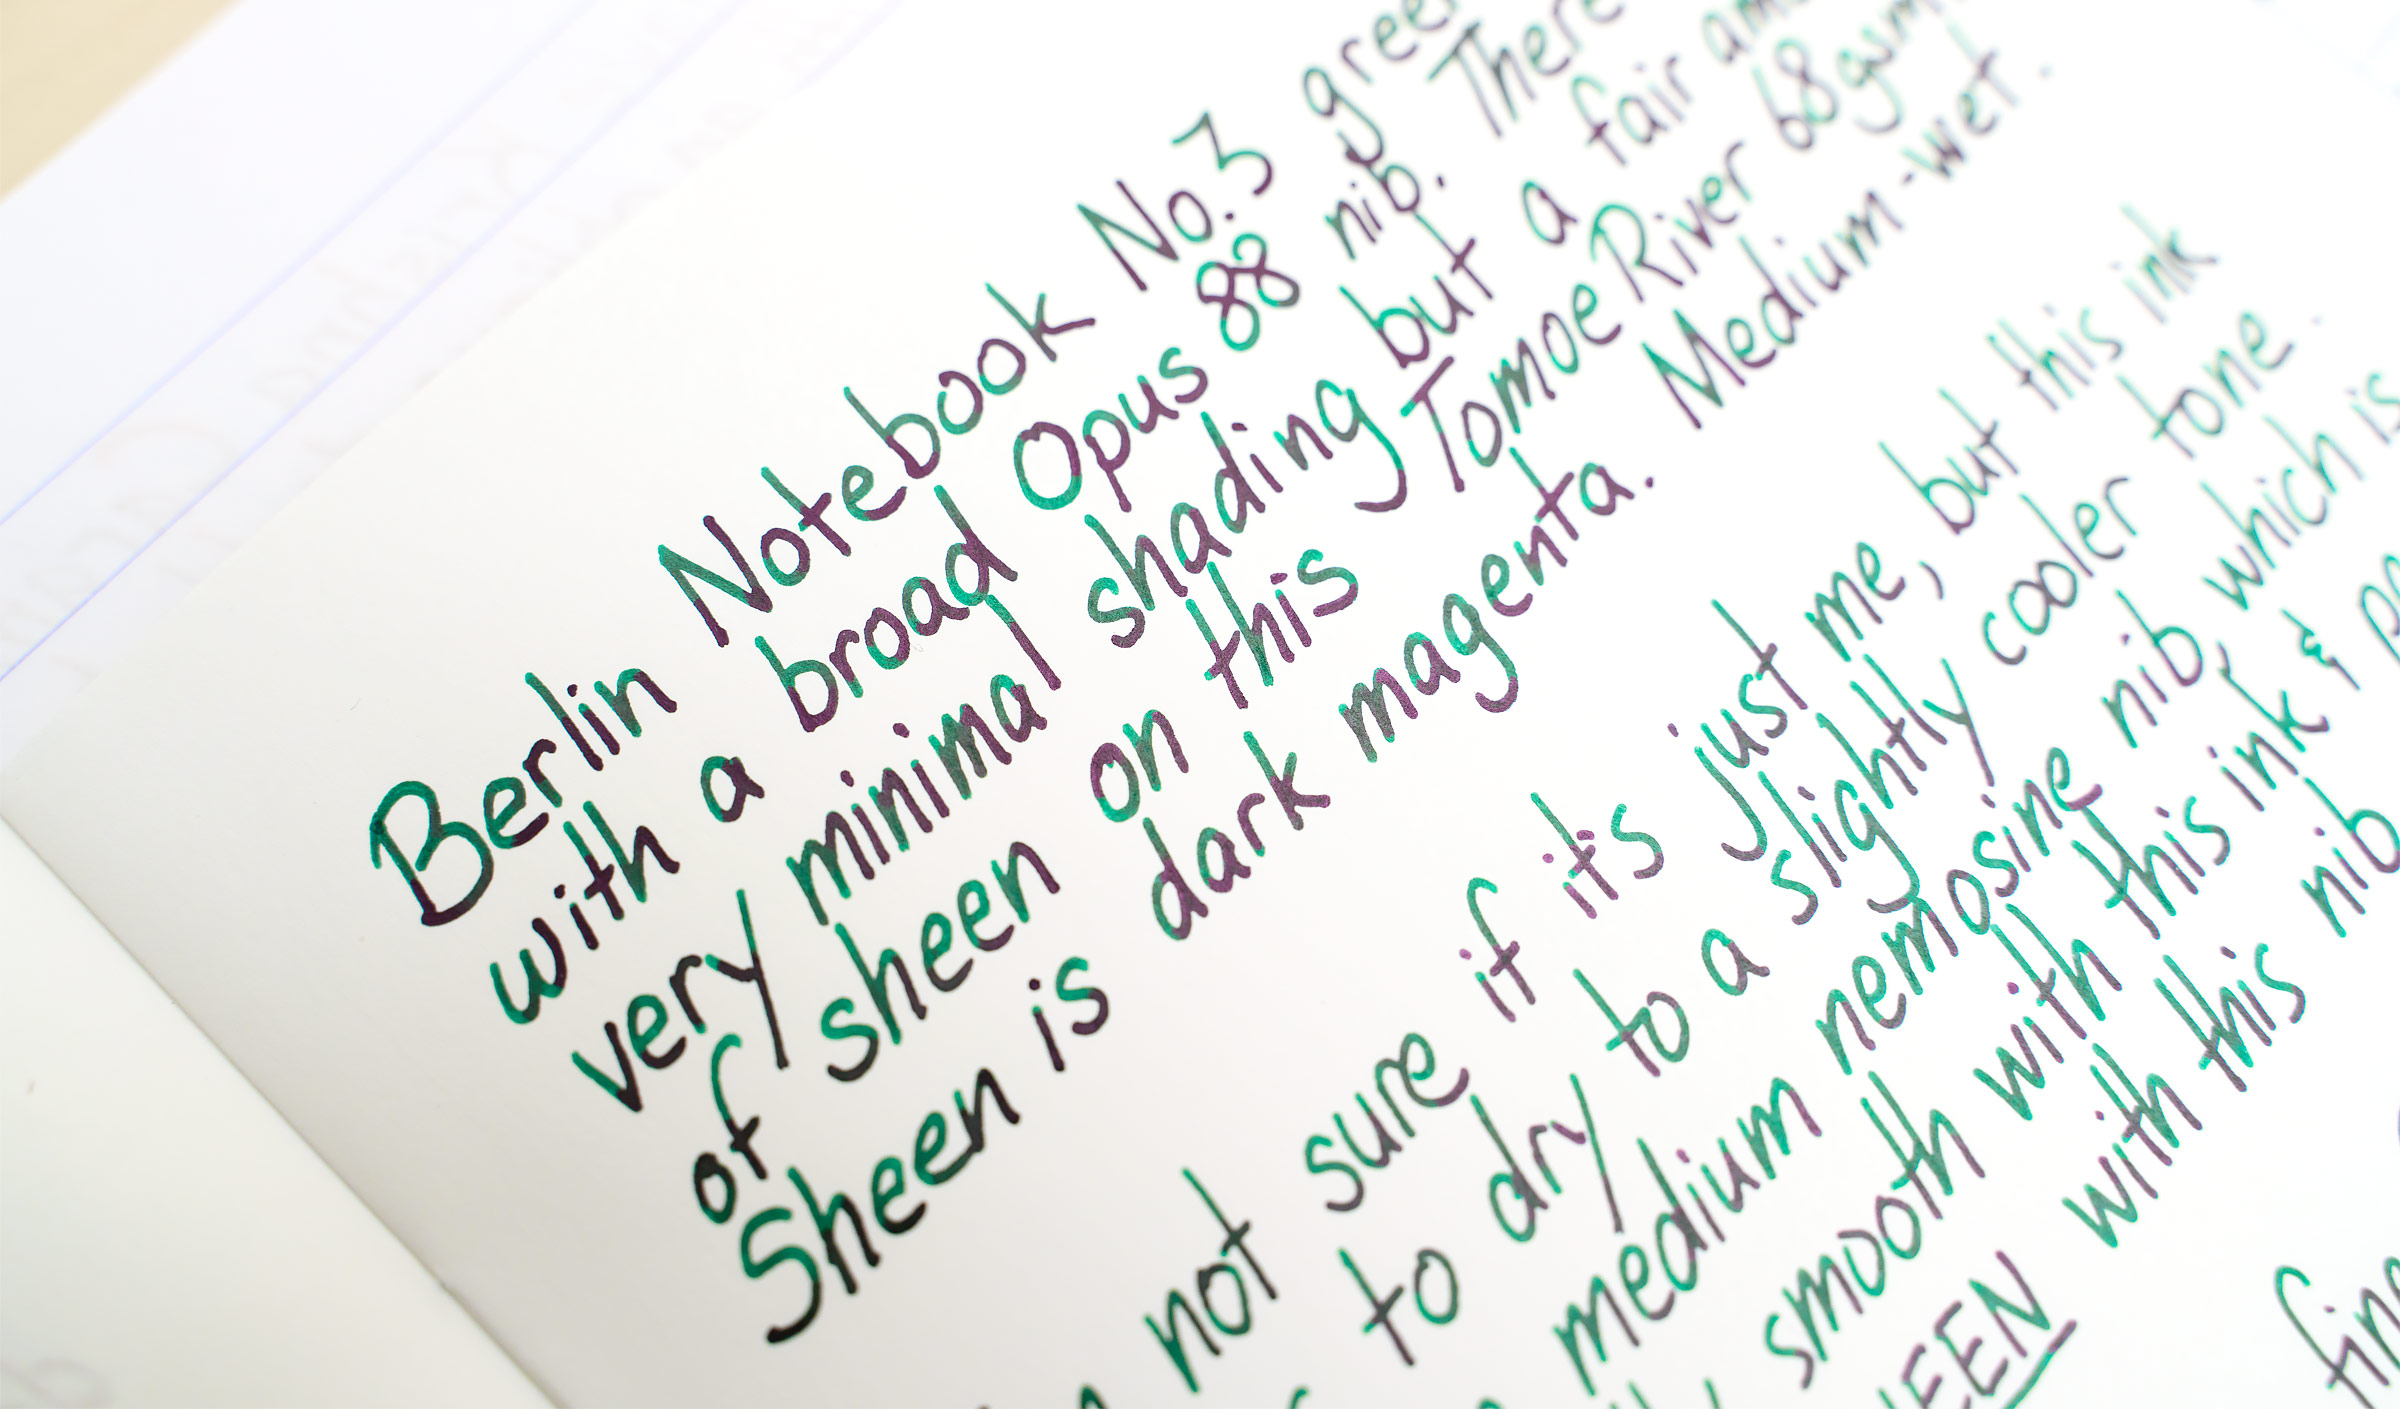 Berlin Notebook No.3 green
with a broad Opus 88 nib. There
very minimal shading but a fair
of sheen on this Tomoe River 68gsm
Sheen is dark magenta. Medium-wet.
not sure if its just me, but this ink
to dry to a slightly cooler tone.
medium nemosine nib, which is
smooth with this ink &
with this nib